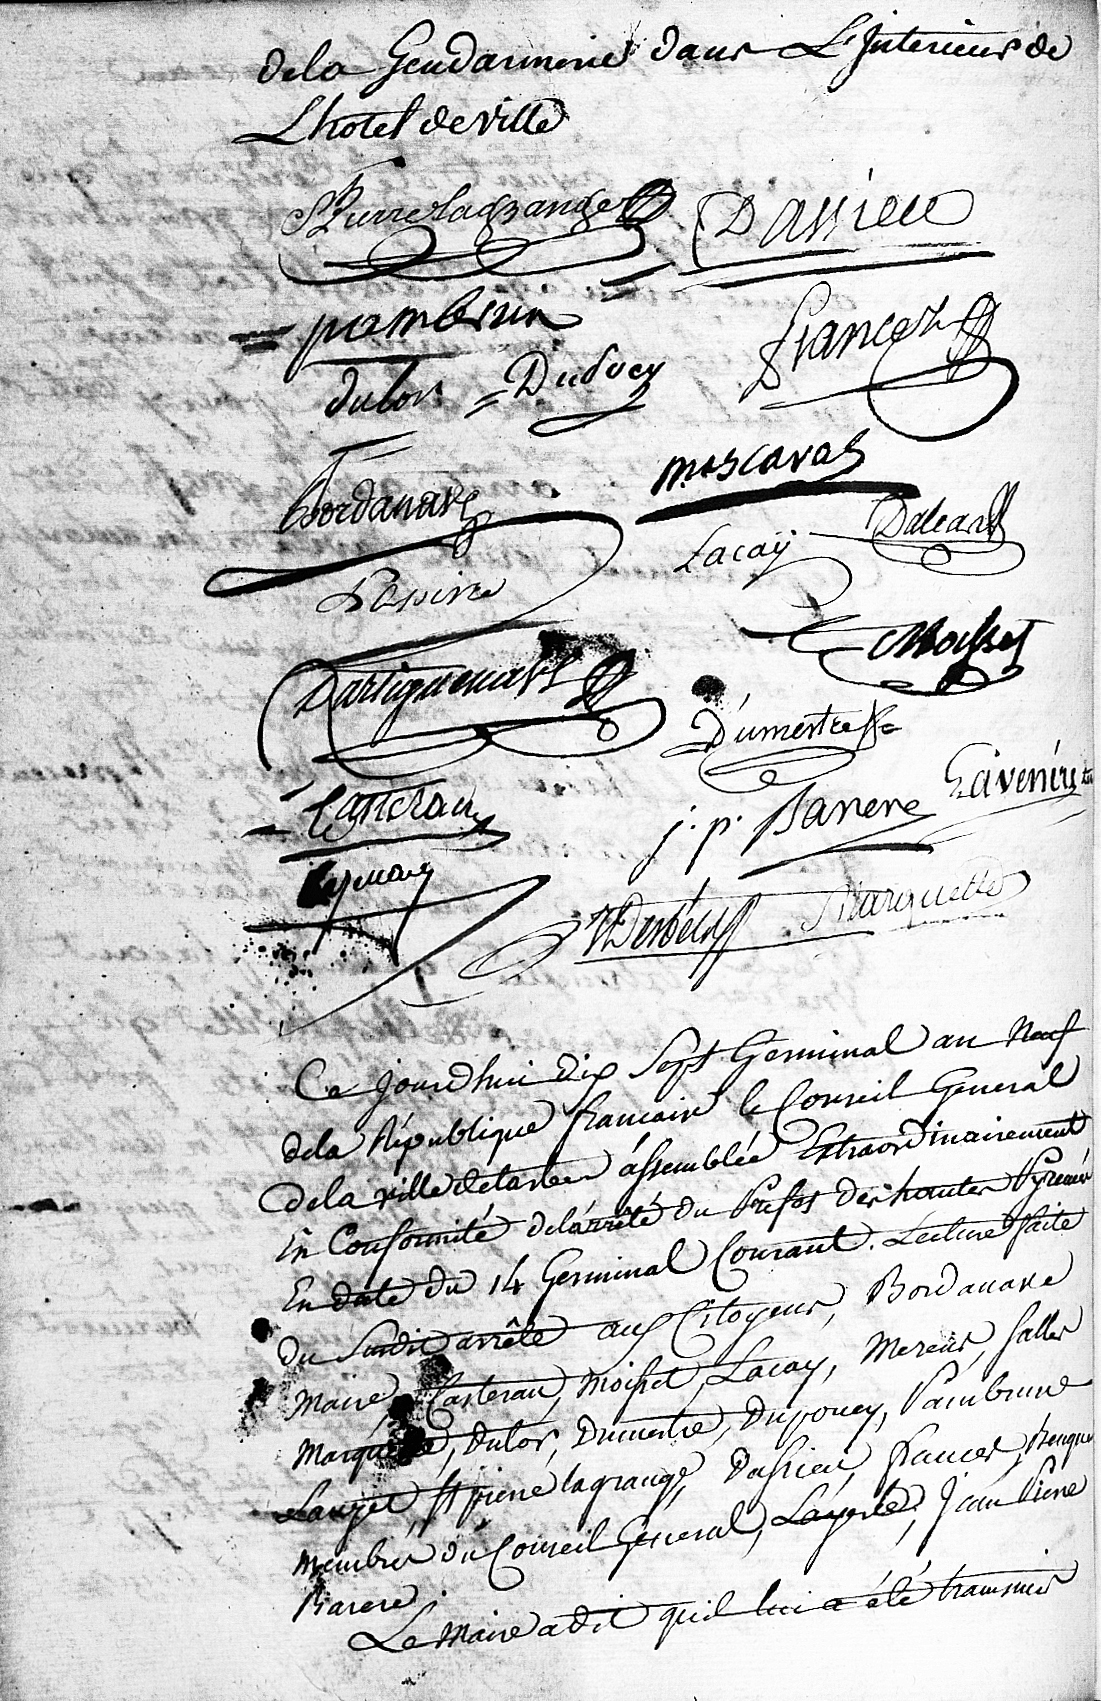 dela Gendarmerie dans L'Interieur de
Lhotel deville
St Pierre Lagrange Dassieu
pambrun
francez
dulor = Dupoey
mascaras
Bordanave
Daleas
Lacaÿ
Moisset
Dartiguenave
Dumestre
Castéran
j. p. Barrere
Marquette
Ce jourdhui dix Sept Germinal an Neuf
dela République francaise le Conseil General
dela ville detarbes assemblée Extraordinairement
En Conformité delarrêté du Prefet des hautes Pyrenées
En date du 14 Germinal Courant. Lecture faite
du Susdit arrêté aux Citoyens, Bordanave
Maire, Casteran, Moisset, Lacay, Mereus, Salles
Marquette, dulor, Dumestre, Dupouey, Pambrune
Lauzet, St pierre lagrange, Dassieu, francez,
Membres du Conseil General, Layerle, Jean Pierre
Barere.
Le Maire adit quil lui a été transmis